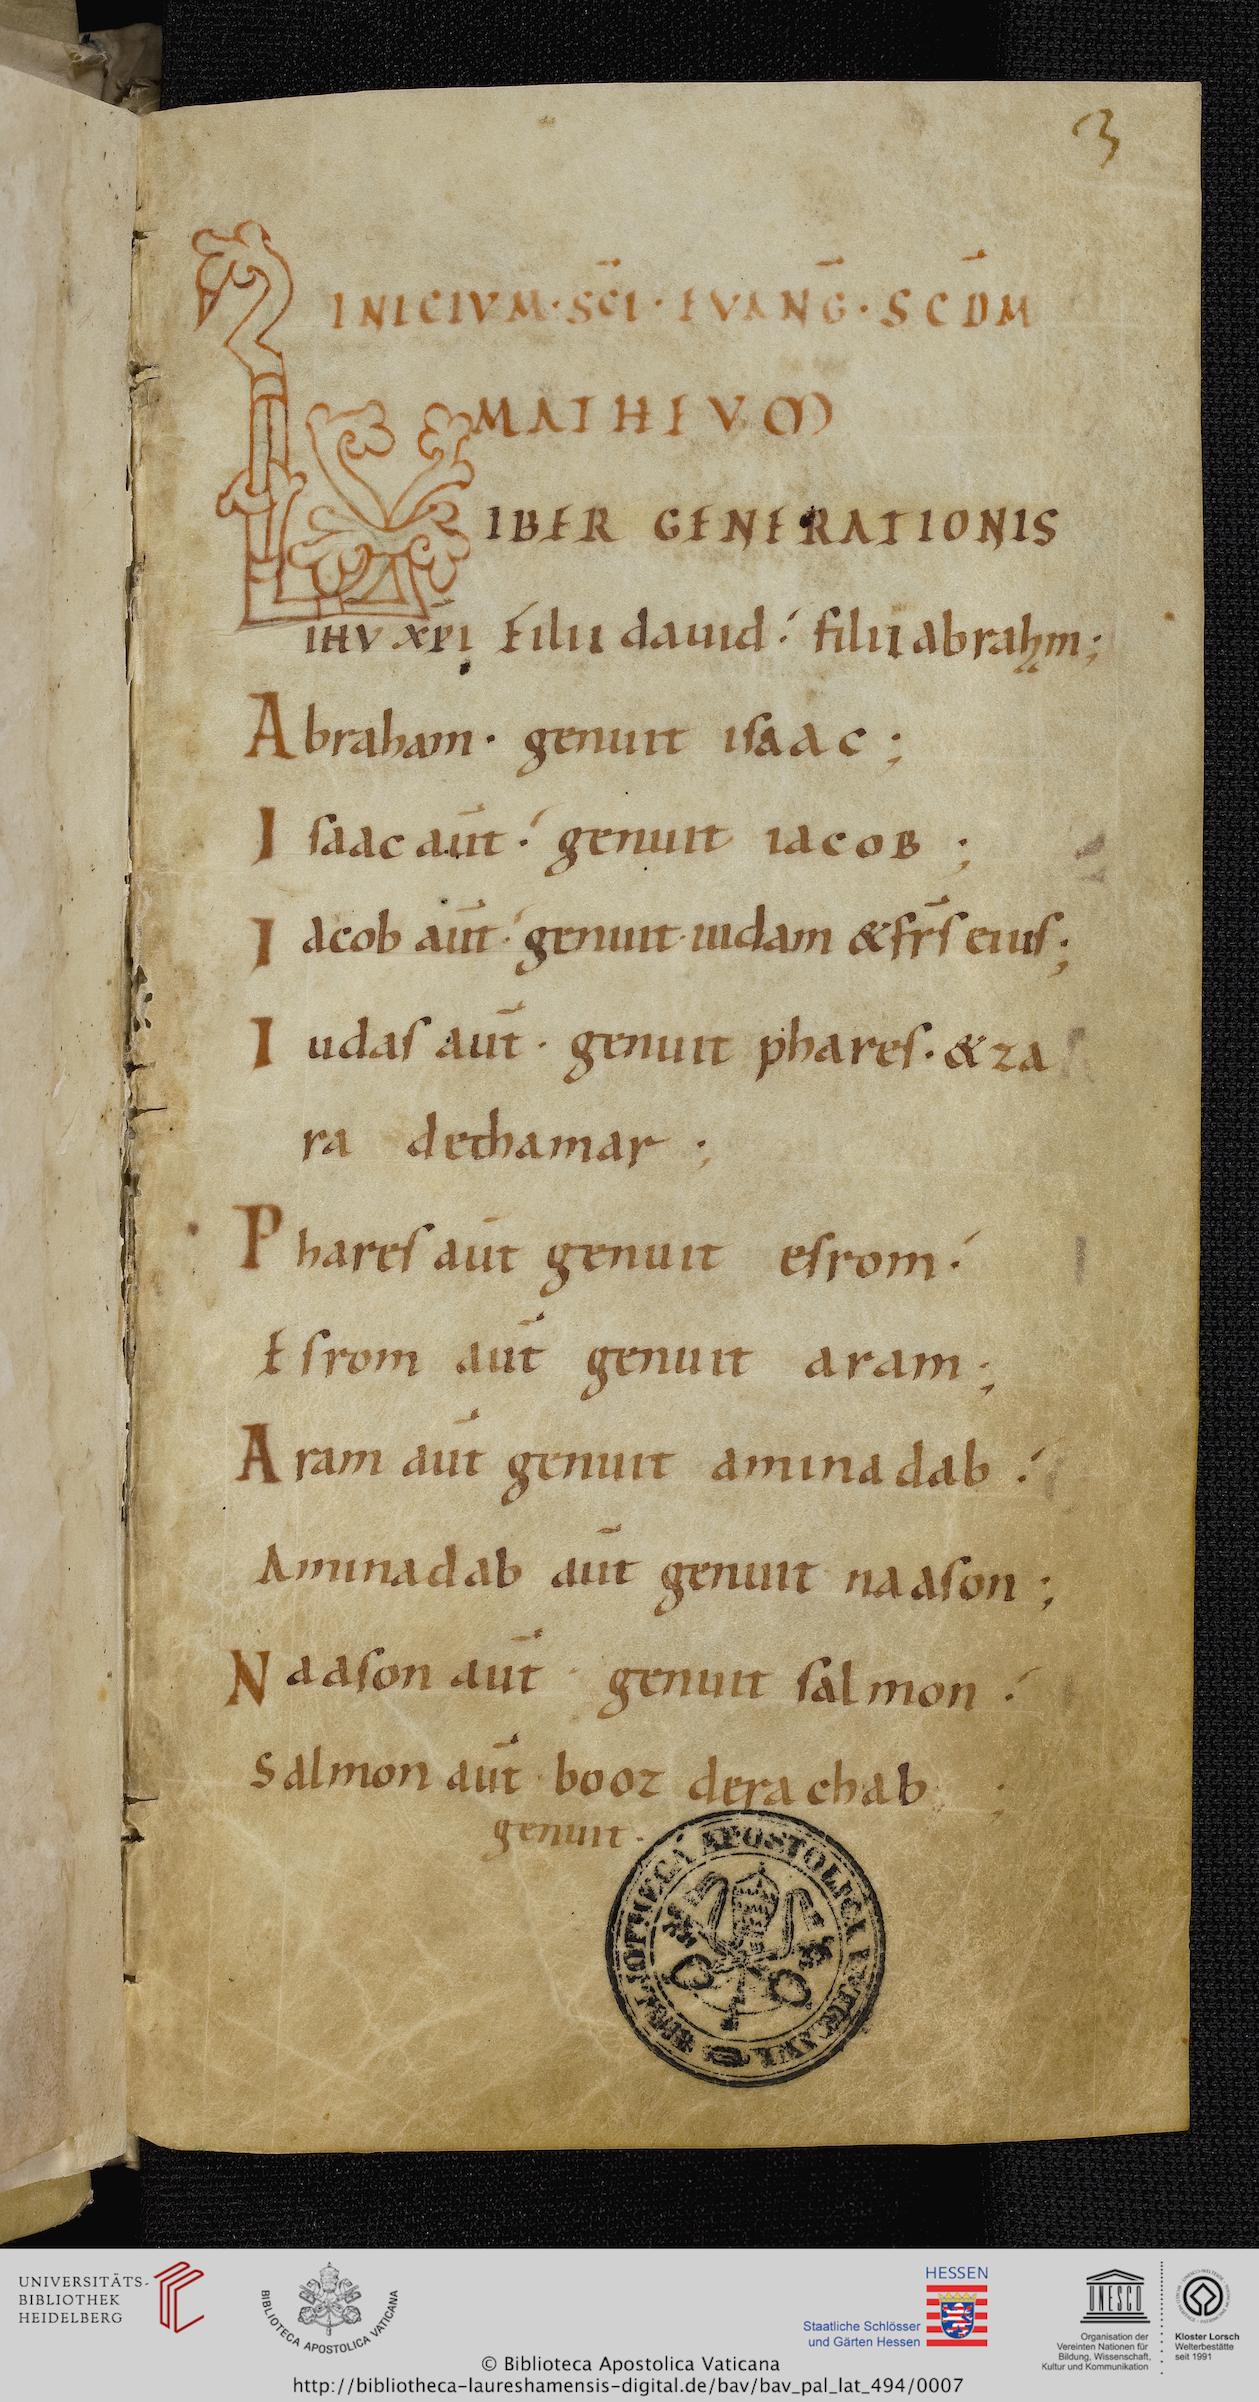 3
INICIVM · SC̄I · EVANḠ · SCD̄M
MATHEVM
LIBER GENERATIONIS
IHV XP̄I Filii dauid filii abrahm;
Abraham · genuit isaac;
Isaac aūt genuit iacoB;
Iacob aūt genuit · iudam & fr̄s eius;
Iudas aūt · genuit phares · & za
ra dethamar;
Phares aūt genuit esrom
Esrom aūt genuit aram;
Aram aūt genuit aminadab
Aminadab aūt genuit naason;
Naason aūt · genuit salmon
Salmon aūt · booz derachab;
genuit ·
BIBLIOTHECA APOSTOLICA VATICANA
UNIVERSITÄTS-
BIBLIOTHEK
HEIDELBERG
BIBLIOTECA APOSTOLICA VATICANA
HESSEN
Staatliche Schlösser
und Gärten Hessen
UNESCO
Organisation der
Vereinten Nationen für
Bildung, Wissenschaft,
Kultur und Kommunikation
Kloster Lorsch
Welterbestätte
seit 1991
© Biblioteca Apostolica Vaticana
http://bibliotheca-laureshamensis-digital.de/bav/bav_pal_lat_494/0007